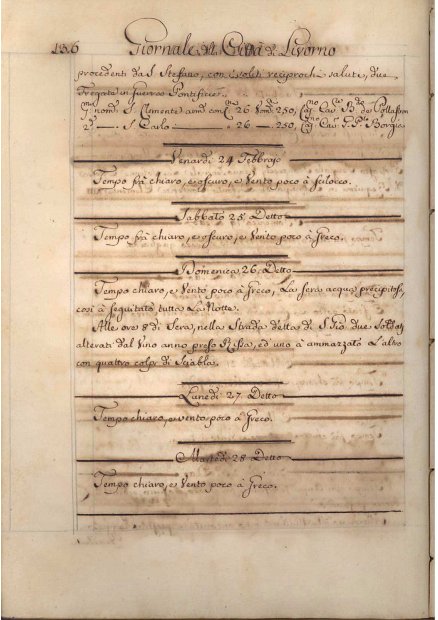 136 Giornale della Città di Livorno
procedenti da S. Stefano, con i soliti reciprochi saluti, due
Fregate in guerra Pontificie.
nom.a S. Clemente arm. con 26 250, Cav.
2.a — S. Carlo — 26 — 250, Cav. Borgia
Venardi 24 Febbraio
Tempo frà chiaro, e oscuro, e Vento poco à scilocco.
Sabbato 25 Detto
Tempo frà chiaro, e oscuro, e Vento poco à Greco.
Domenica 26 Detto
Tempo chiaro, e Vento poco à Greco, La sera acqua precipitosa,
così à seguitato tutta La Notte.
Alle ore 8 di Sera, nella Strada detta di S. Gio. due Soldati
alterati dal Vino anno preso Rissa, ed uno à ammazzato L'altro
con quattro colpi di Sciabla.
Lunedi 27 Detto
Tempo chiaro, e vento poco à Greco.
Martedi 28 Detto
Tempo chiaro, e Vento poco à Greco.